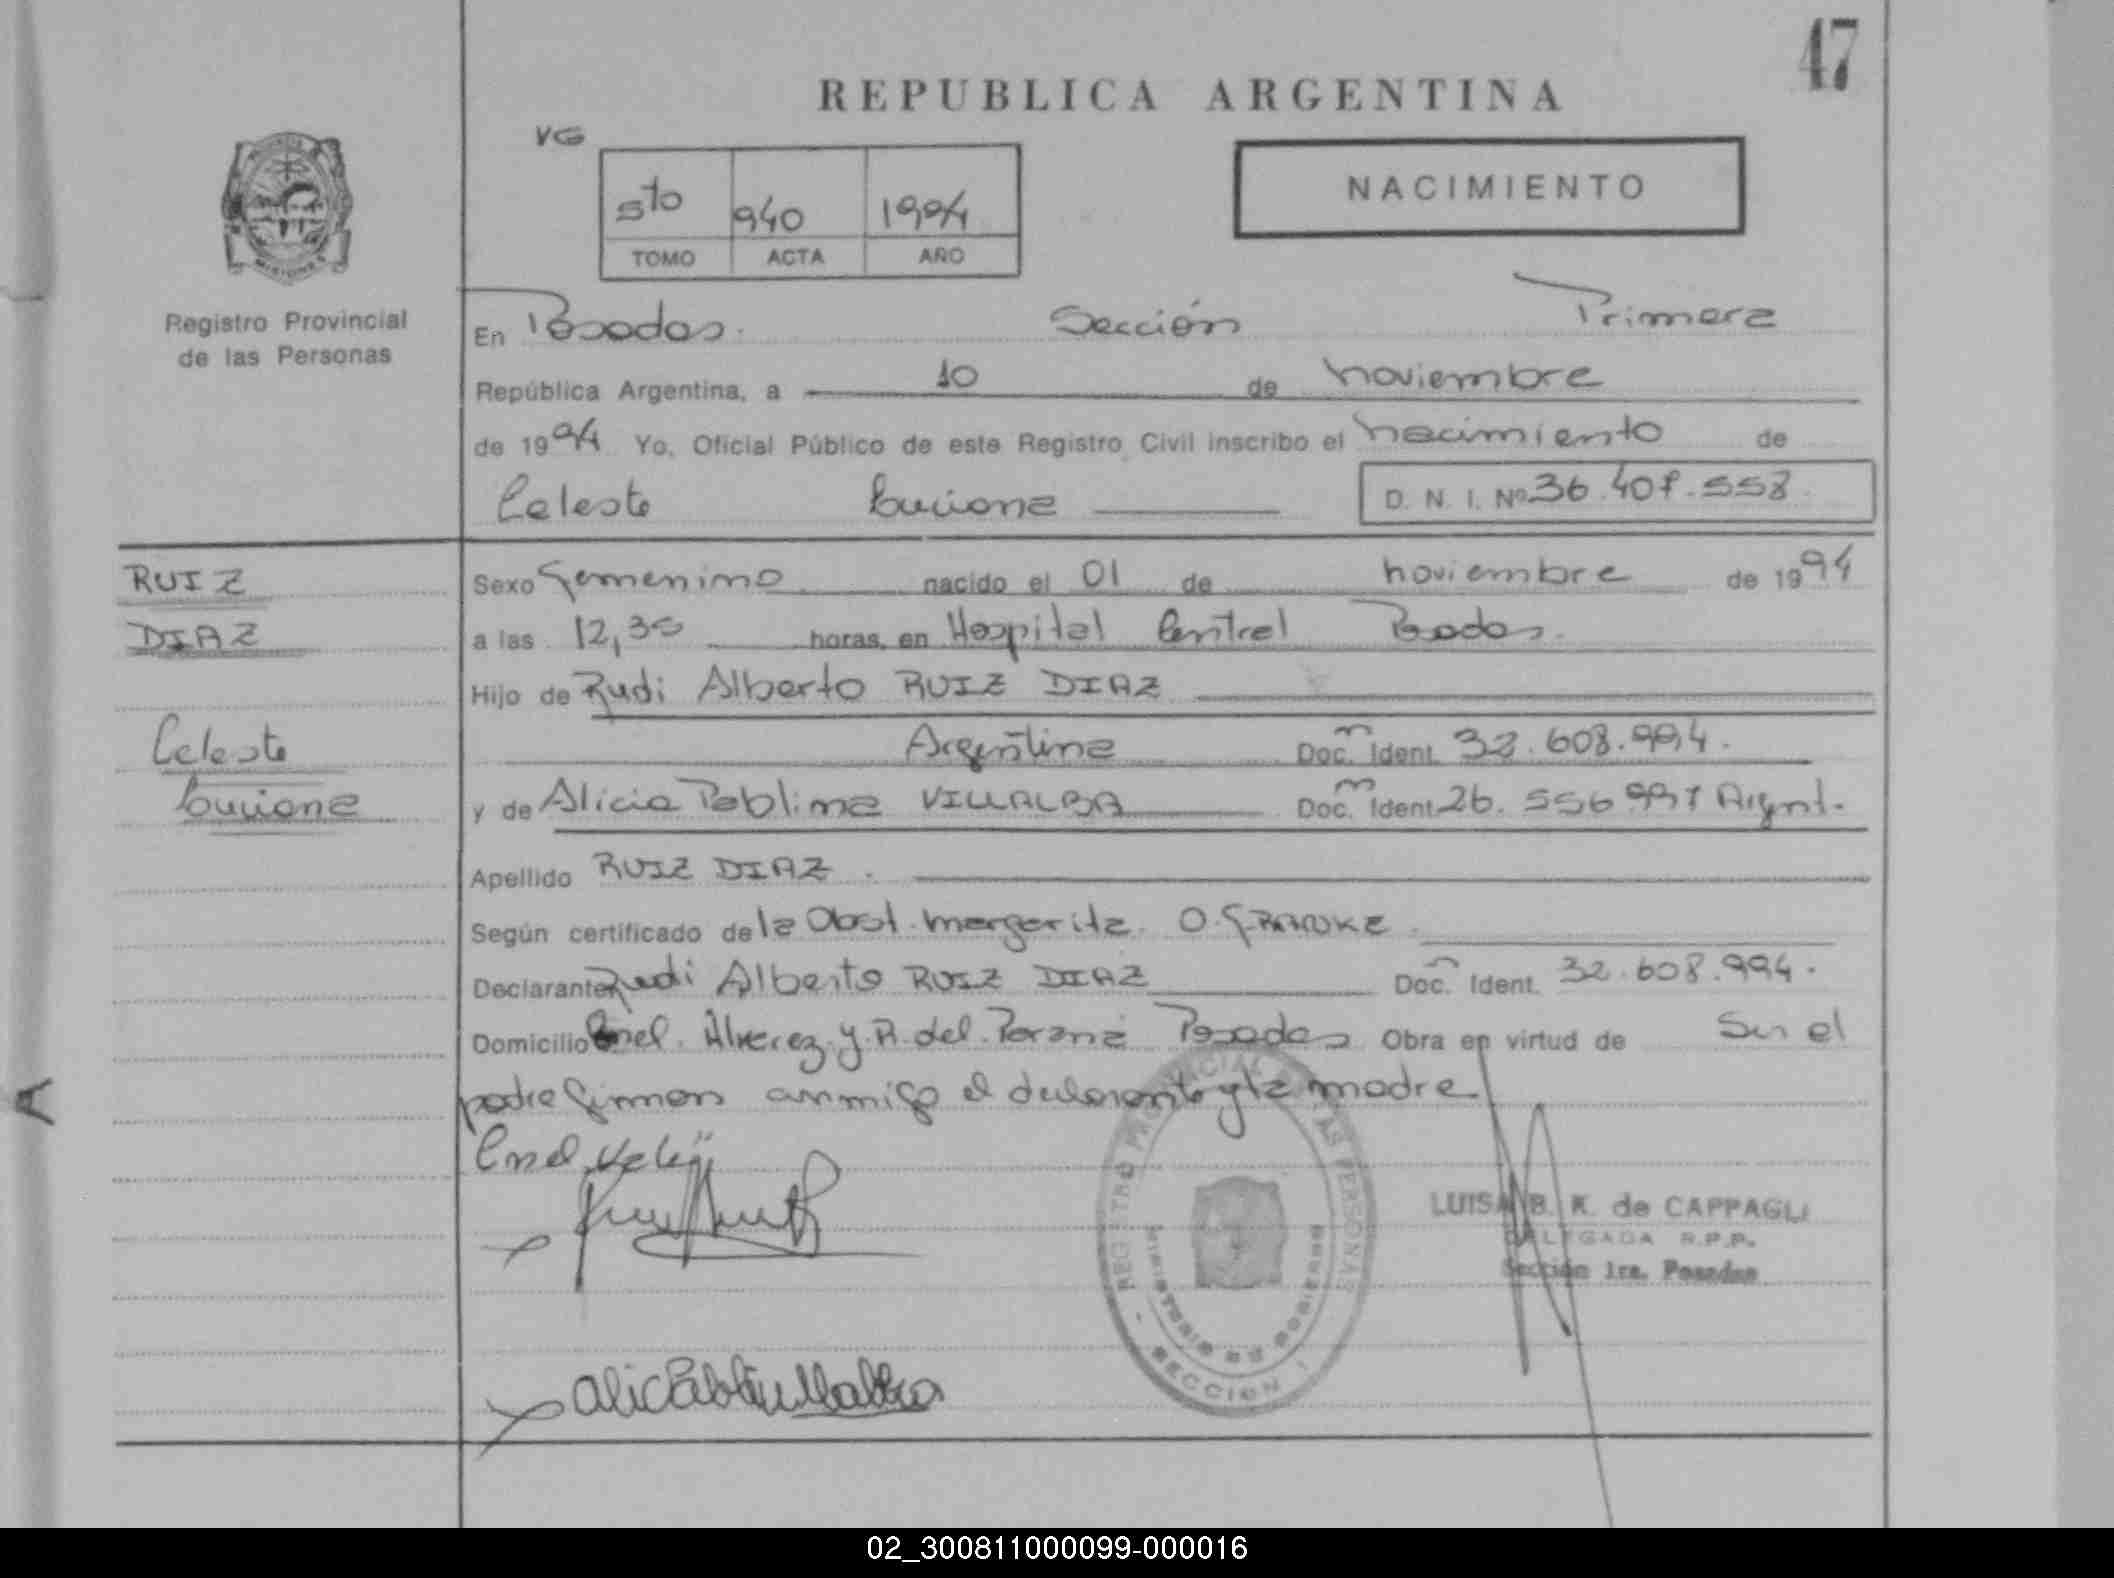 47
REPUBLICA ARGENTINA
VG
NACIMIENTO
5to 940 1994
TOMO ACTA AÑO
Registro Provincial
de las Personas
En Posadas. Sección Primera
República Argentina, a 10 de noviembre
de 1994 Yo, Oficial Público de este Registro Civil inscribo el nacimiento de
Celeste Luciana D. N. I. Nº 36.407.558
RUIZ
DIAZ
Celeste
Luciana
Sexo femenino nacido el 01 de noviembre de 1994
a las 12,30 horas, en Hospital Central Posadas.
Hijo de Rudi Alberto RUIZ DIAZ
Argentina Doc. Ident. 32.608.994.
y de Alicia Pablina VILLALBA Doc. Ident. 26.556.997 Argent.
Apellido RUIZ DIAZ.
Según certificado de la Obst. Margarita O.
Declarante Rudi Alberto RUIZ DIAZ Doc. Ident. 32.608.994.
Domicilio Cnel. Alverez y R. del Paraná Posadas Obra en virtud de Ser el
padre firman conmigo el declarante y la madre
REGISTRO PROVINCIAL DE LAS PERSONAS
MINISTERIO DE GOBIERNO
SECCION 1
LUISA B. K. de CAPPAGLI
DELEGADA R.P.P.
Sección 1ra. Posadas
A
02_300811000099-000016